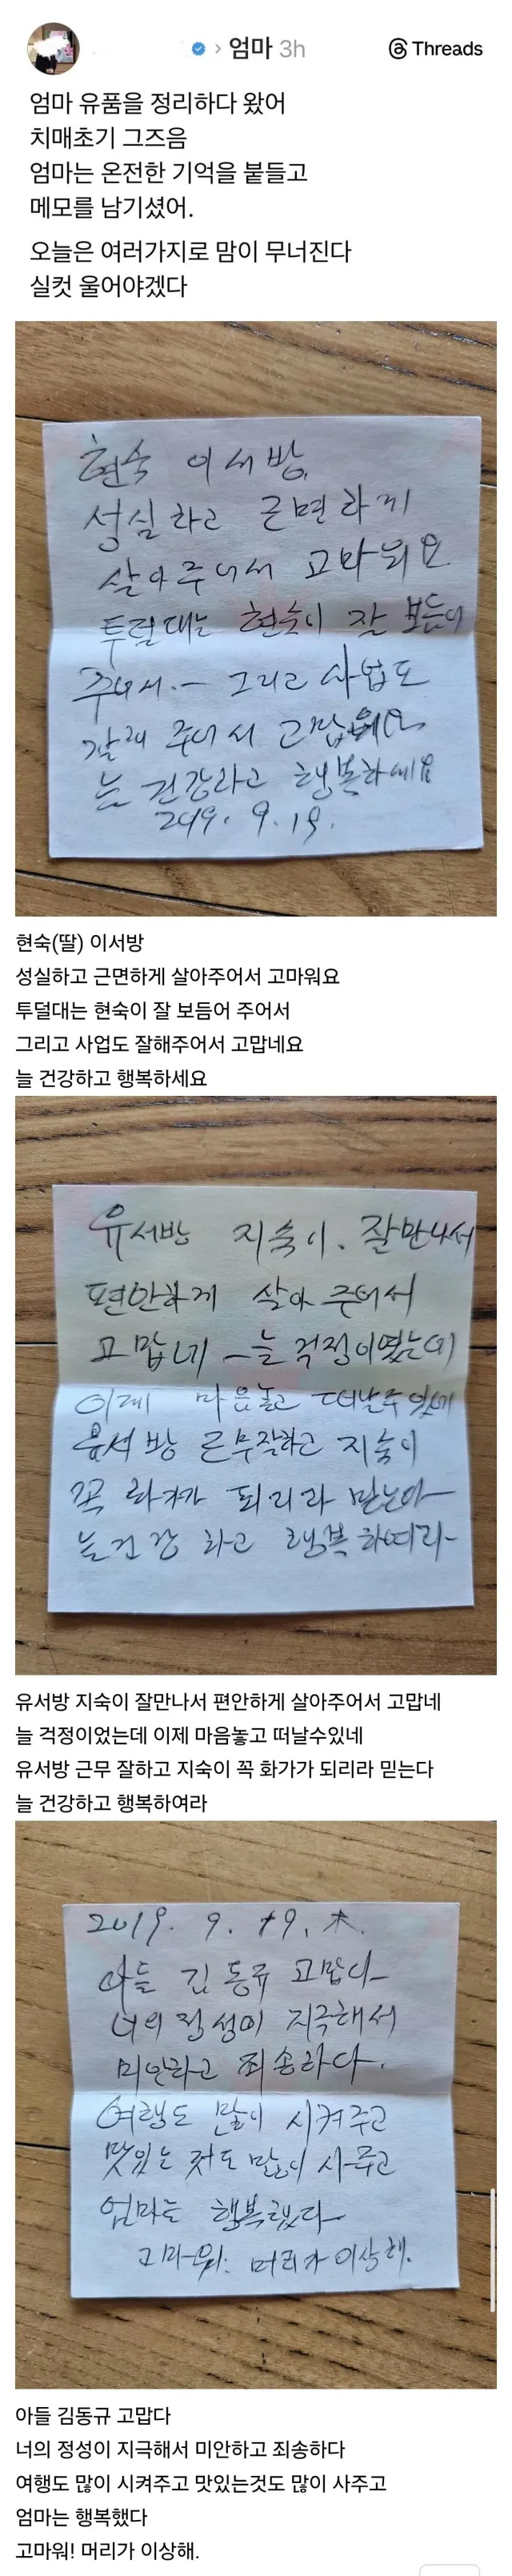 엄마 3h
Threads
엄마 유품을 정리하다 왔어
치매초기 그즈음
엄마는 온전한 기억을 붙들고
메모를 남기셨어.
오늘은 여러가지로 맘이 무너진다
실컷 울어야겠다
현숙 이서방
성실하고 근면하게
살아주어서 고마워요
투덜대는 현숙이 잘 보듬어
주어서. 그리고 사업도
잘해 주어서
늘 건강하고 행복하세요
2019. 9. 19.
현숙(딸) 이서방
성실하고 근면하게 살아주어서 고마워요
투덜대는 현숙이 잘 보듬어 주어서
그리고 사업도 잘해주어서 고맙네요
늘 건강하고 행복하세요
유서방 지숙이. 잘만나서
편안하게 살아 주어서
고맙네 늘 걱정이었는데
이제 마음놓고 떠날수있네
유서방 근무잘하고 지숙이
꼭 화가가 되리라 믿는다
늘건강 하고 행복하여라
유서방 지숙이 잘만나서 편안하게 살아주어서 고맙네
늘 걱정이었는데 이제 마음놓고 떠날수있네
유서방 근무 잘하고 지숙이 꼭 화가가 되리라 믿는다
늘 건강하고 행복하여라
2019. 9. 19. 木.
아들 김동규 고맙다
너의 정성이 지극해서
미안하고 죄송하다.
여행도 많이 시켜주고
맛있는 것도 많이 사주고
엄마는 행복했다
고마워. 머리가 이상해.
아들 김동규 고맙다
너의 정성이 지극해서 미안하고 죄송하다
여행도 많이 시켜주고 맛있는것도 많이 사주고
엄마는 행복했다
고마워! 머리가 이상해.